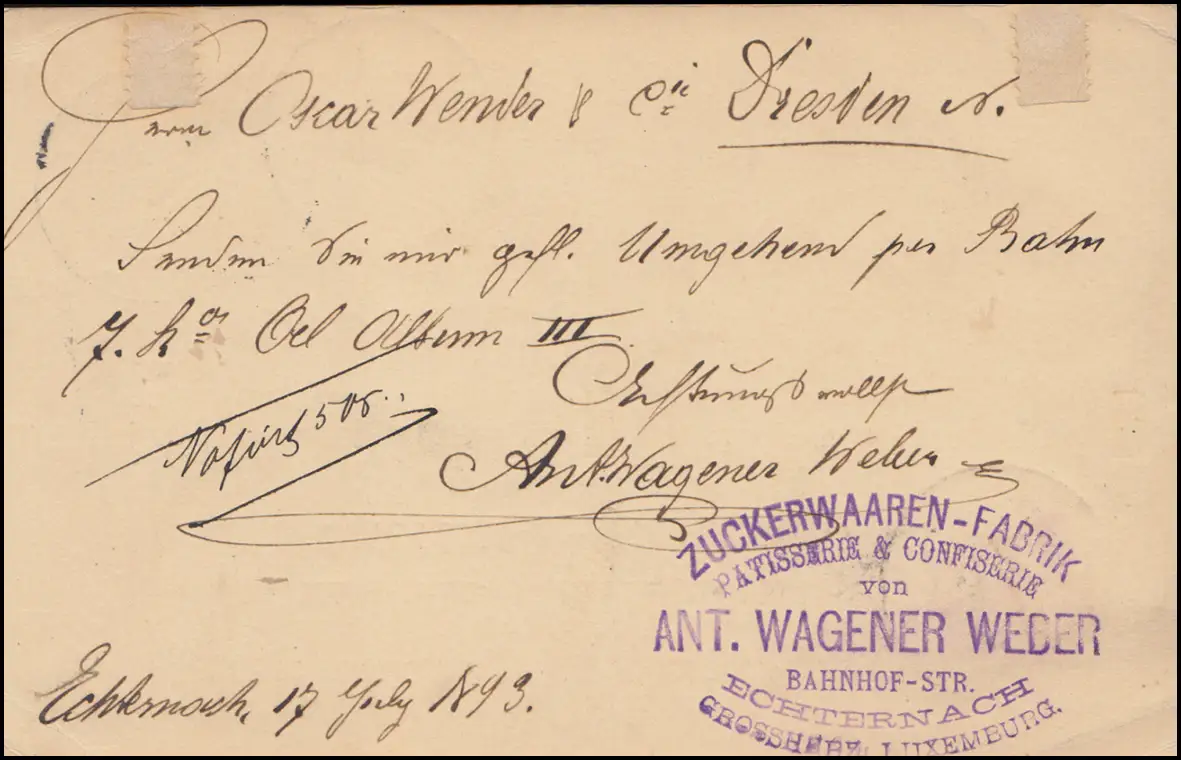 Firma Oscar Wender & Cie Dresden N.
Senden Sie mir gefl. Umgehend per Bahn
7. Ko Oel Album III
Achtungsvollst
Ant. Wagener Weber
ZUCKERWAAREN-FABRIK
PATISSERIE & CONFISERIE
von
ANT. WAGENER WEBER
BAHNHOF-STR.
ECHTERNACH
GROSSHERZ. LUXEMBURG.
Echternach, 17 July 1893.